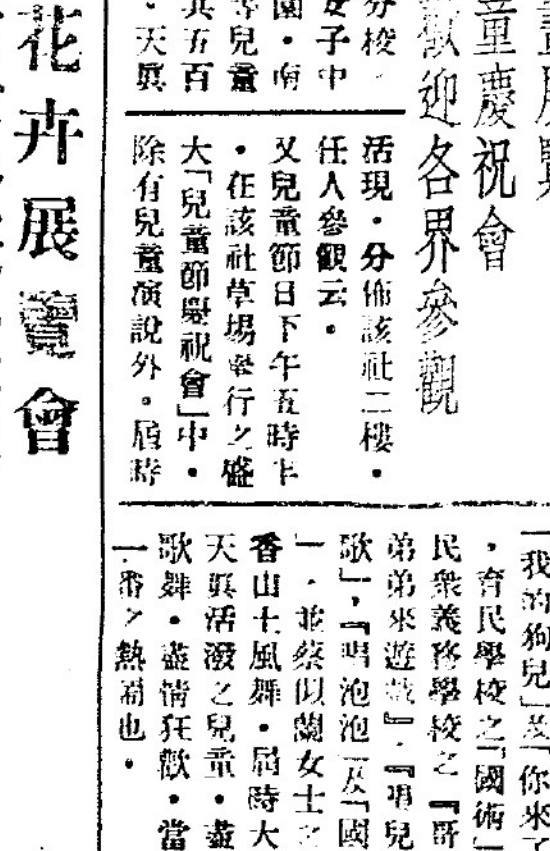 畫展覽
童慶祝會
歡迎各界參觀
分校・
女子中
園・南
等兒童
其五百
・天眞
活現・分佈該社二樓・
任人參觀云・
又兒童節日下午五時半
・在該社草場舉行之盛
大「兒童節慶祝會」中・
除有兒童演說外。屆時
「我的狗兒」及「你來了
，育民學校之「國術」
民衆義務學校之『哥
弟弟來遊戲』・『唱兒
歌」，『唱泡泡」及「國
」・並蔡似蘭女士之
香山土風舞・屆時大
天眞活潑之兒童・盡
歌舞・盡情狂歡・當
一番之熱鬧也・
花卉展覽會